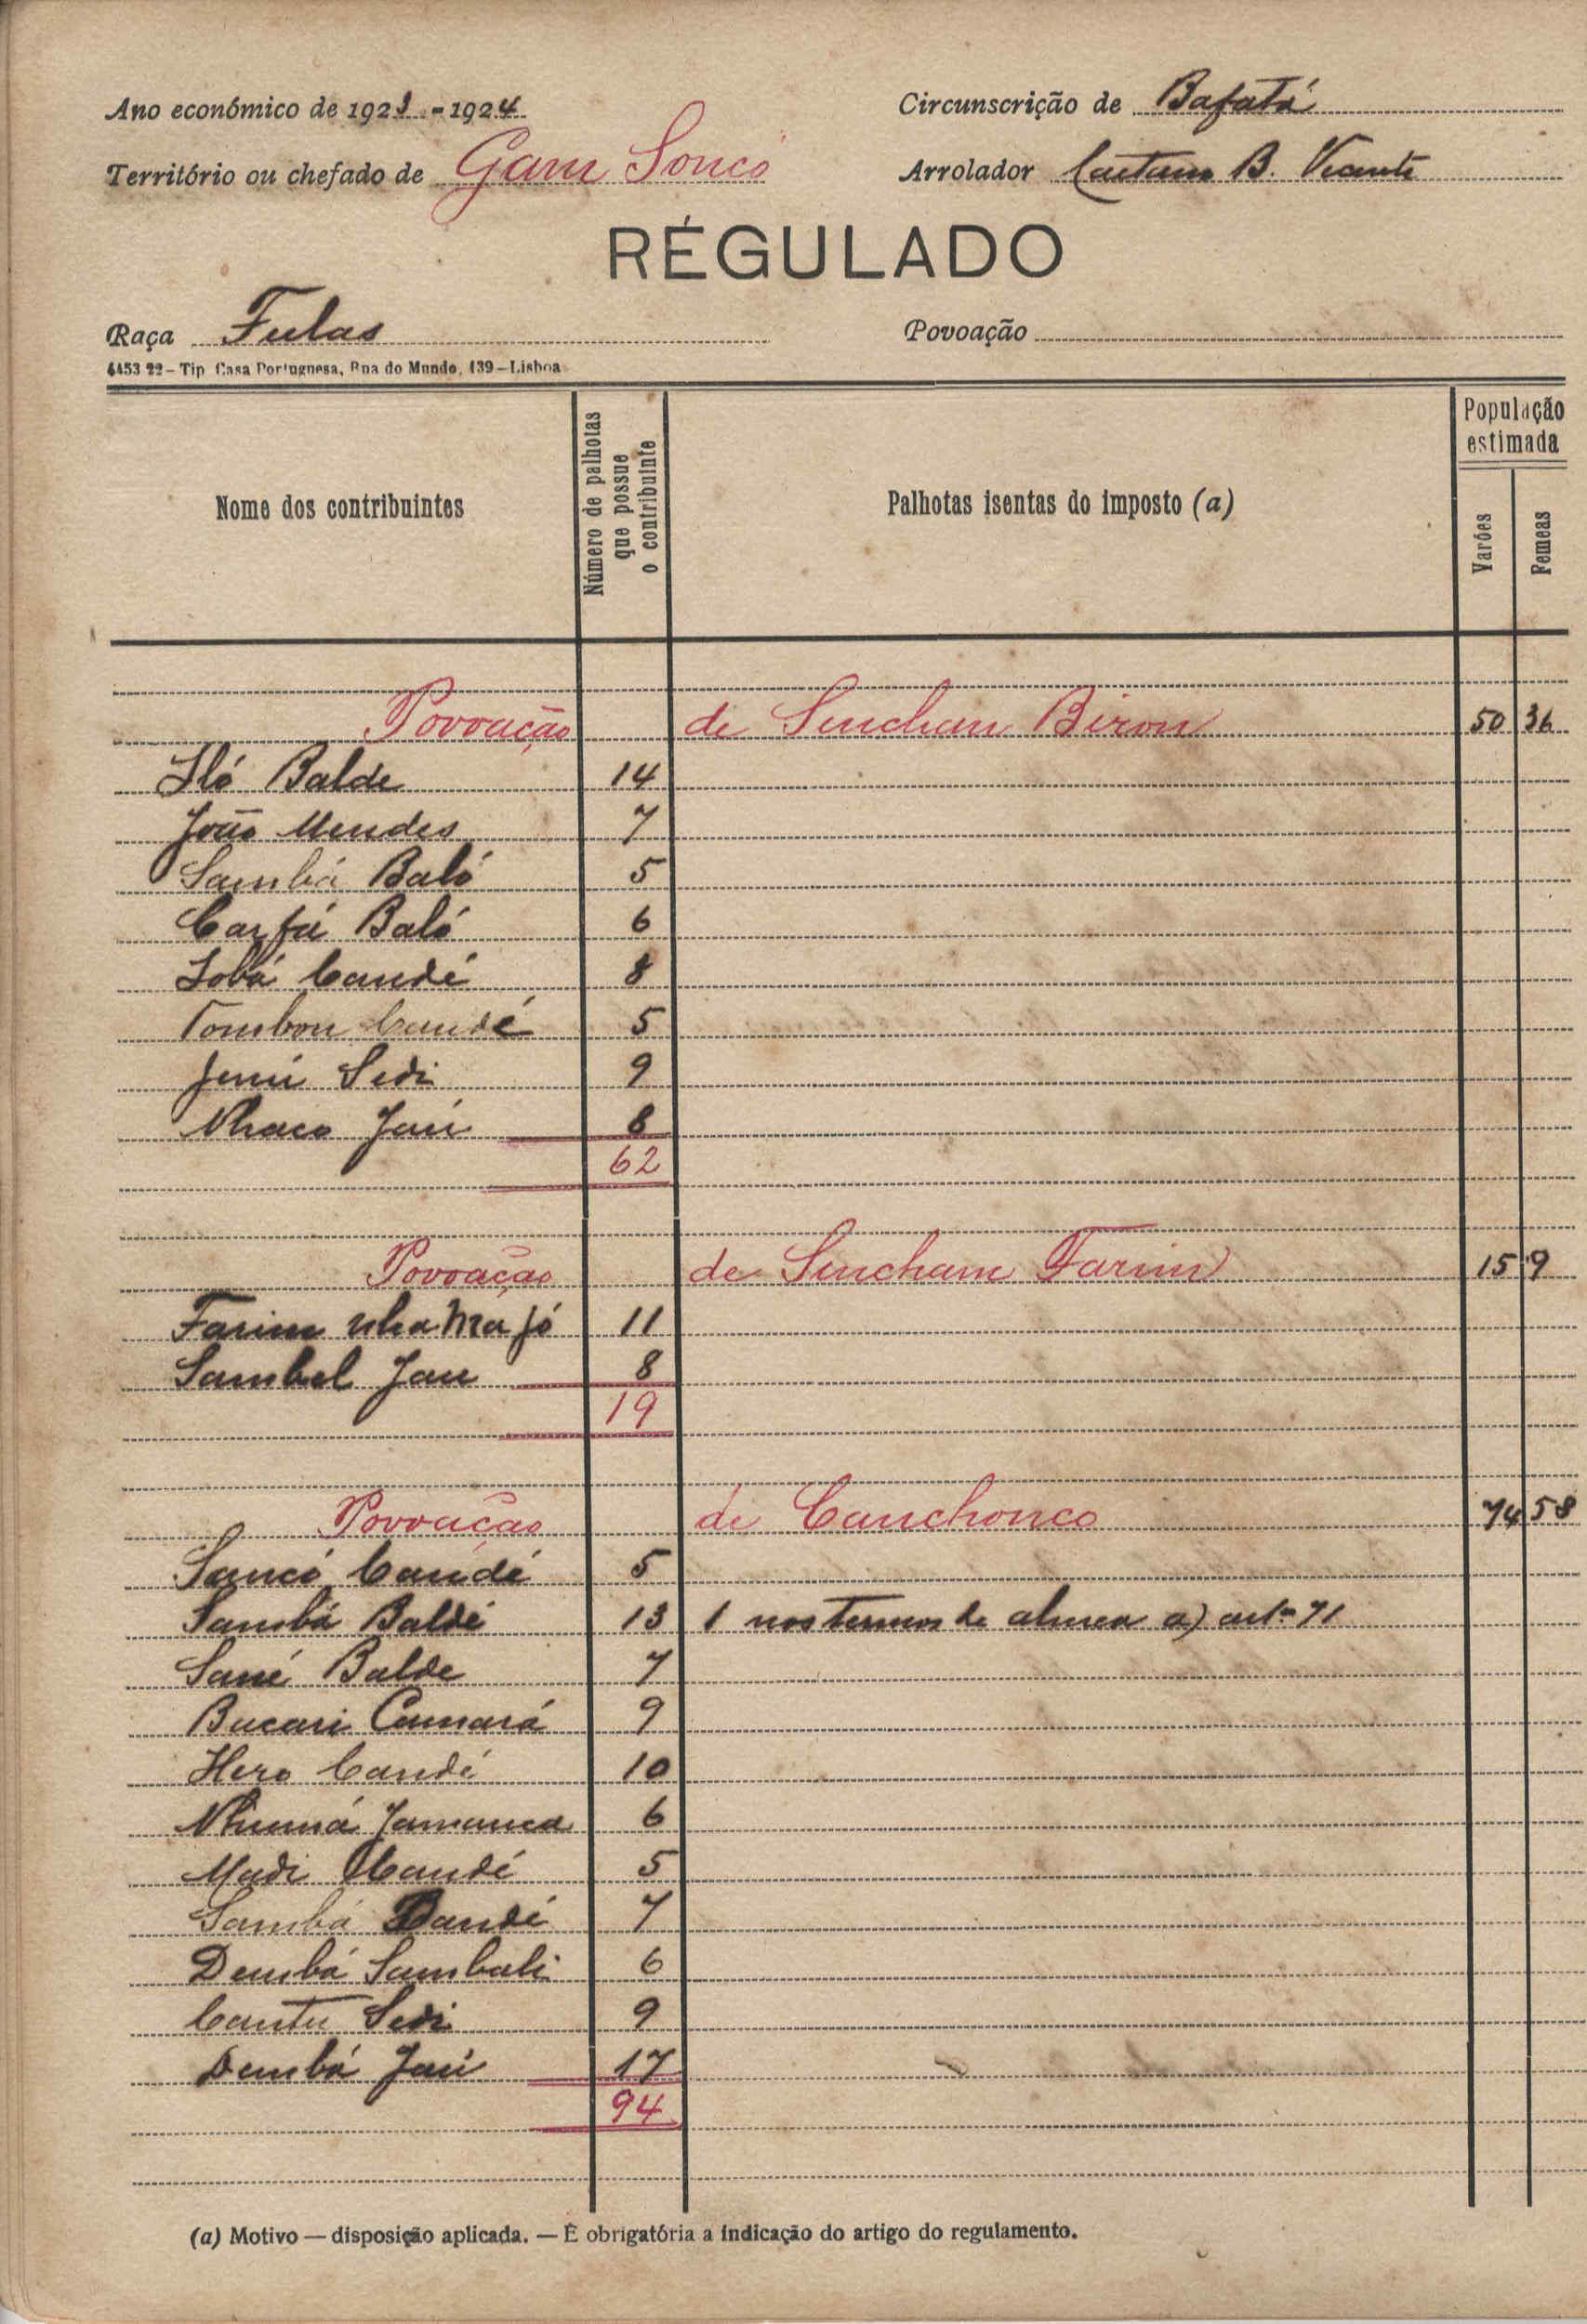 Ano económico de 1923-1924
Circunscrição de Bafatá
Território ou chefado de Gam Soncó
Arrolador Caetano B. Vicente
RÉGULADO
Raça Fulas
Povoação
6453 22 – Tip. Casa Portuguesa, Rua do Mundo, 139 – Lisboa
Nome dos contribuintes
Número de palhotas que possue o contribuinte
Palhotas isentas do imposto (a)
População estimada
Varões
Femeas
Povoação de Sincham Biron 50 36
Iló Balde 14
João Mendes 7
Sambá Baló 5
Carfá Baló 6
Sobá Candé 8
Tombon Candé 5
Jemi Sedi 9
Nhaco Jau 8
62
Povoação de Sincham Farim 15 9
Farim nhamajó 11
Sambel Jau 8
19
Povoação de Canchonco 74 58
Suncó Candé 5
Sambá Baldé 13 1 nos termos de alinea a) artº 71
Sané Balde 7
Bucari Camará 9
Hero Candé 10
Nhumá Jamanca 6
Madi Candé 5
Sambá Candé 7
Dembá Sambali 6
Cantu Sedi 9
Dembá Jau 17
94
(a) Motivo — disposição aplicada. — É obrigatória a indicação do artigo do regulamento.